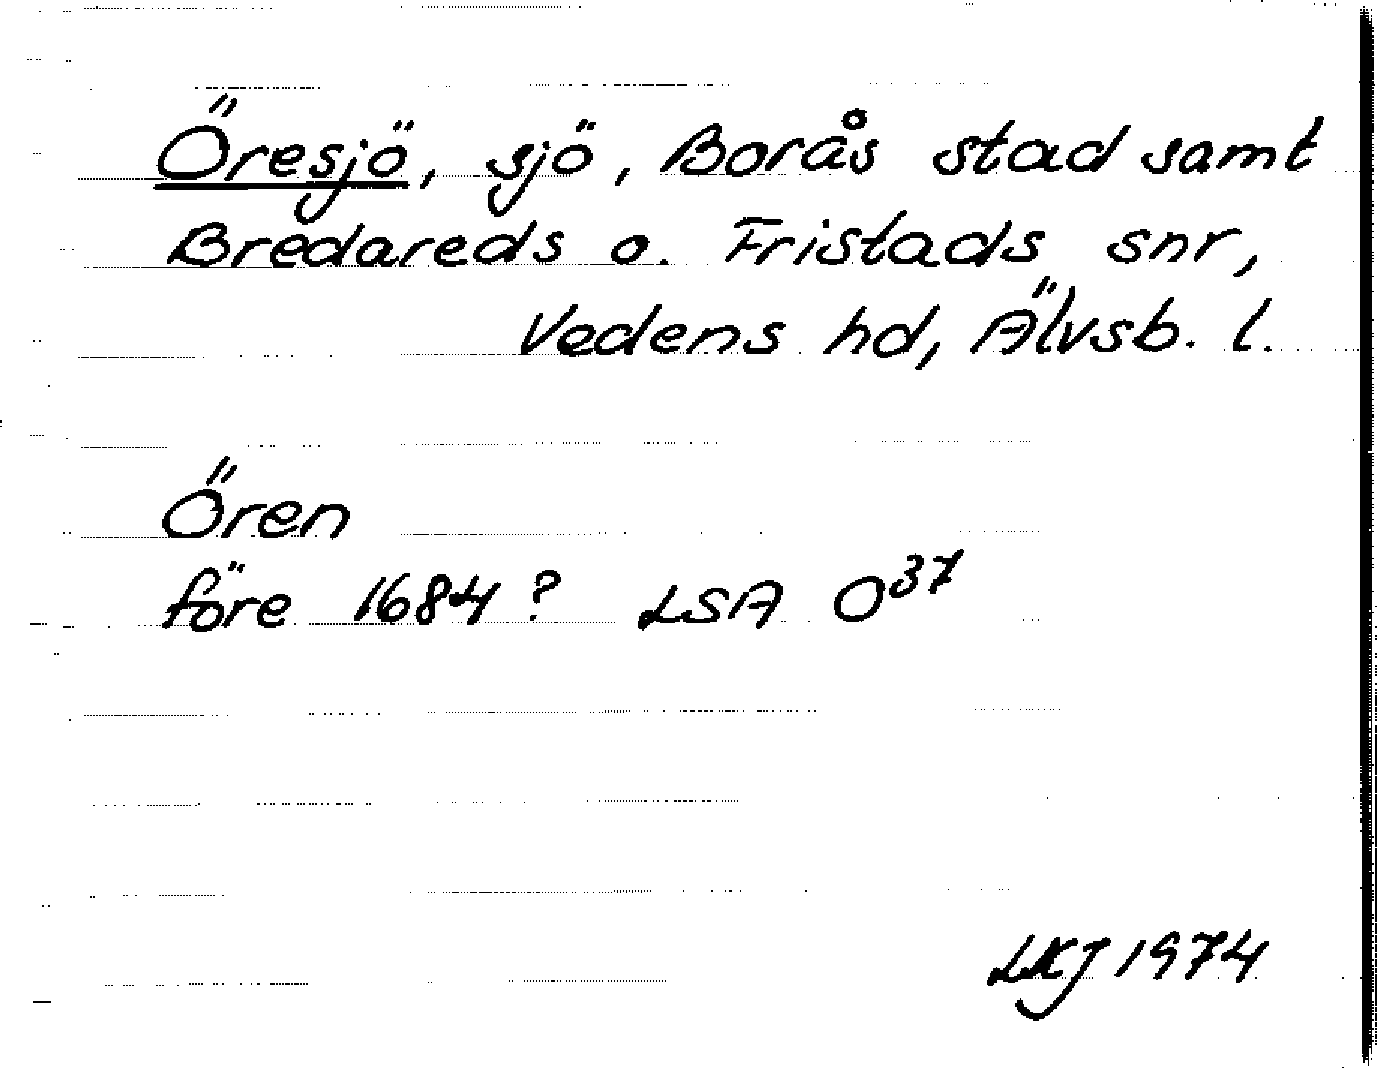 Öresjö, sjö, Borås stad samt
Bredareds o. Fristads snr,
Vedens hd, Älvsb. l.
Ören
före 1684? LSA O³⁷
LKJ 1974